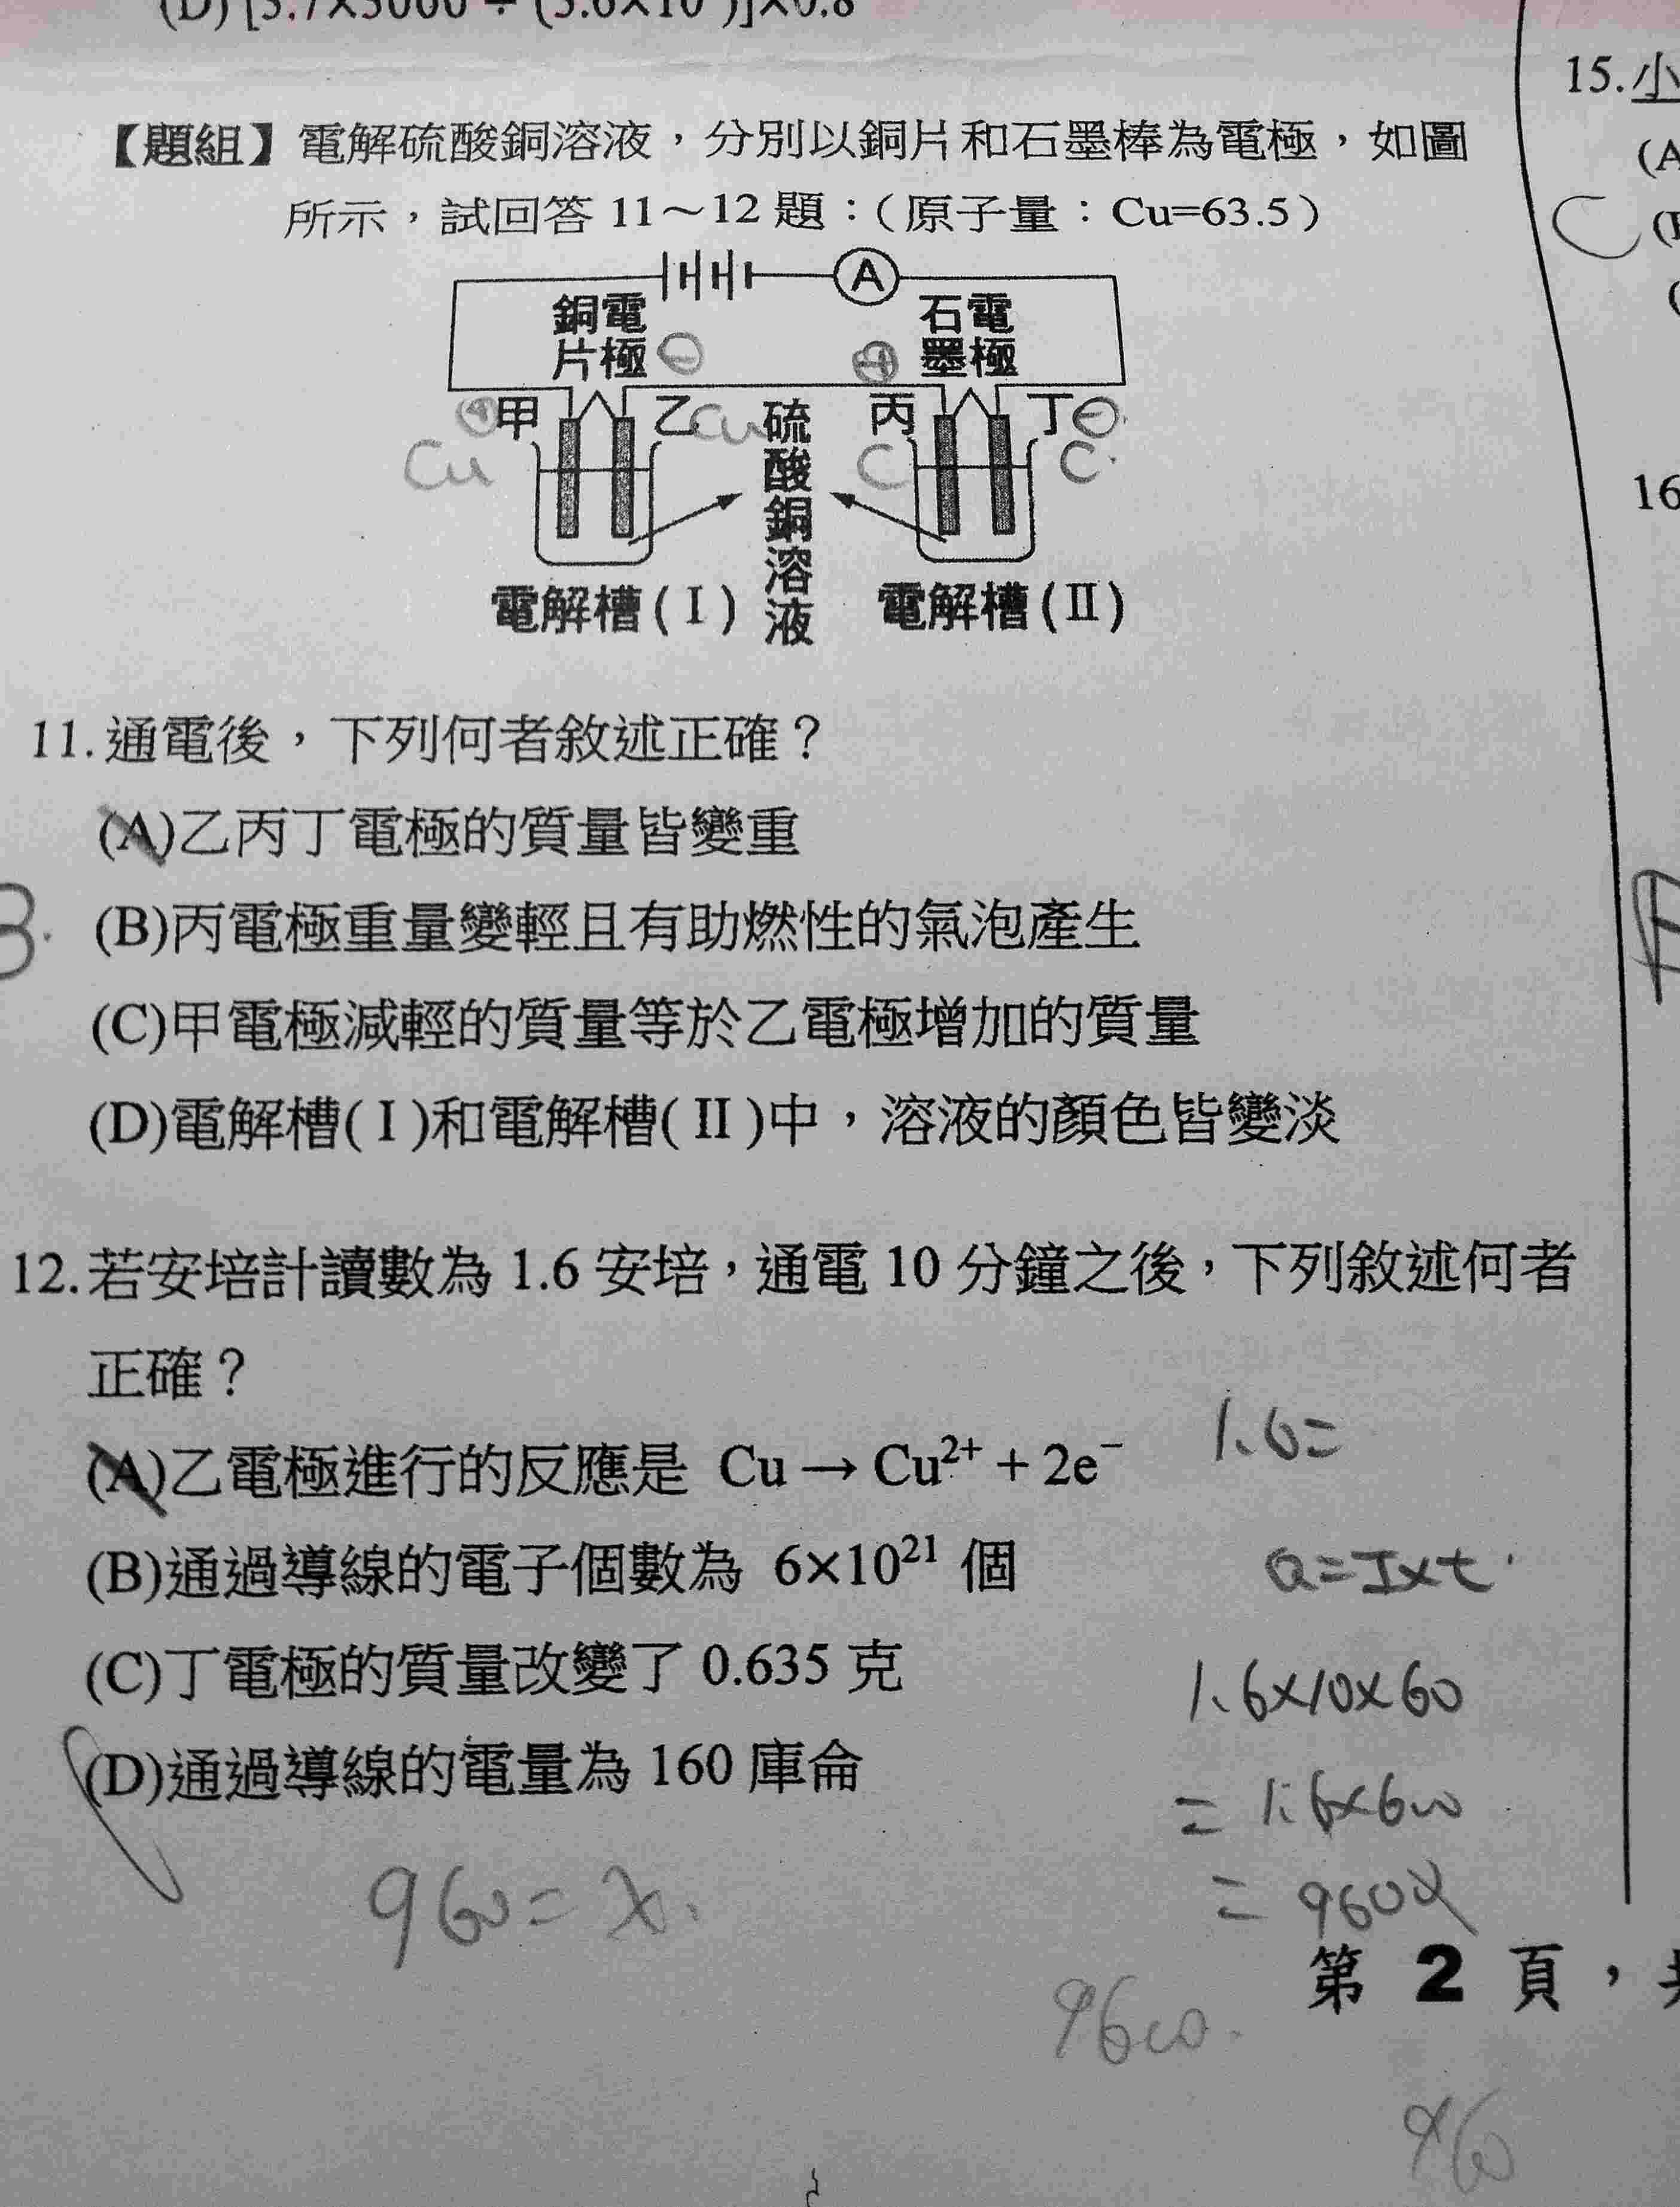 (D) [3.7×3000 ÷ (3.6×10 )]×0.8
【題組】電解硫酸銅溶液，分別以銅片和石墨棒為電極，如圖
所示，試回答 11～12 題：（原子量：Cu=63.5）
A
銅片電極 ⊖
⊕ 石墨電極
⊕ 甲
乙 Cu
硫酸銅溶液
丙
丁 ⊖
Cu
C
C.
電解槽(Ⅰ)
電解槽(Ⅱ)
11.通電後，下列何者敘述正確？
(A)乙丙丁電極的質量皆變重
B.
(B)丙電極重量變輕且有助燃性的氣泡產生
(C)甲電極減輕的質量等於乙電極增加的質量
(D)電解槽(Ⅰ)和電解槽(Ⅱ)中，溶液的顏色皆變淡
12.若安培計讀數為 1.6 安培，通電 10 分鐘之後，下列敘述何者
正確？
(A)乙電極進行的反應是 Cu → Cu²⁺ + 2e⁻
1.6=
(B)通過導線的電子個數為 6×10²¹ 個
Q=I×t
(C)丁電極的質量改變了 0.635 克
1.6×10×60
(D)通過導線的電量為 160 庫侖
= 1.6×600
960= x.
= 960
第 2 頁，
9600.
960
15.小
(A
C
16